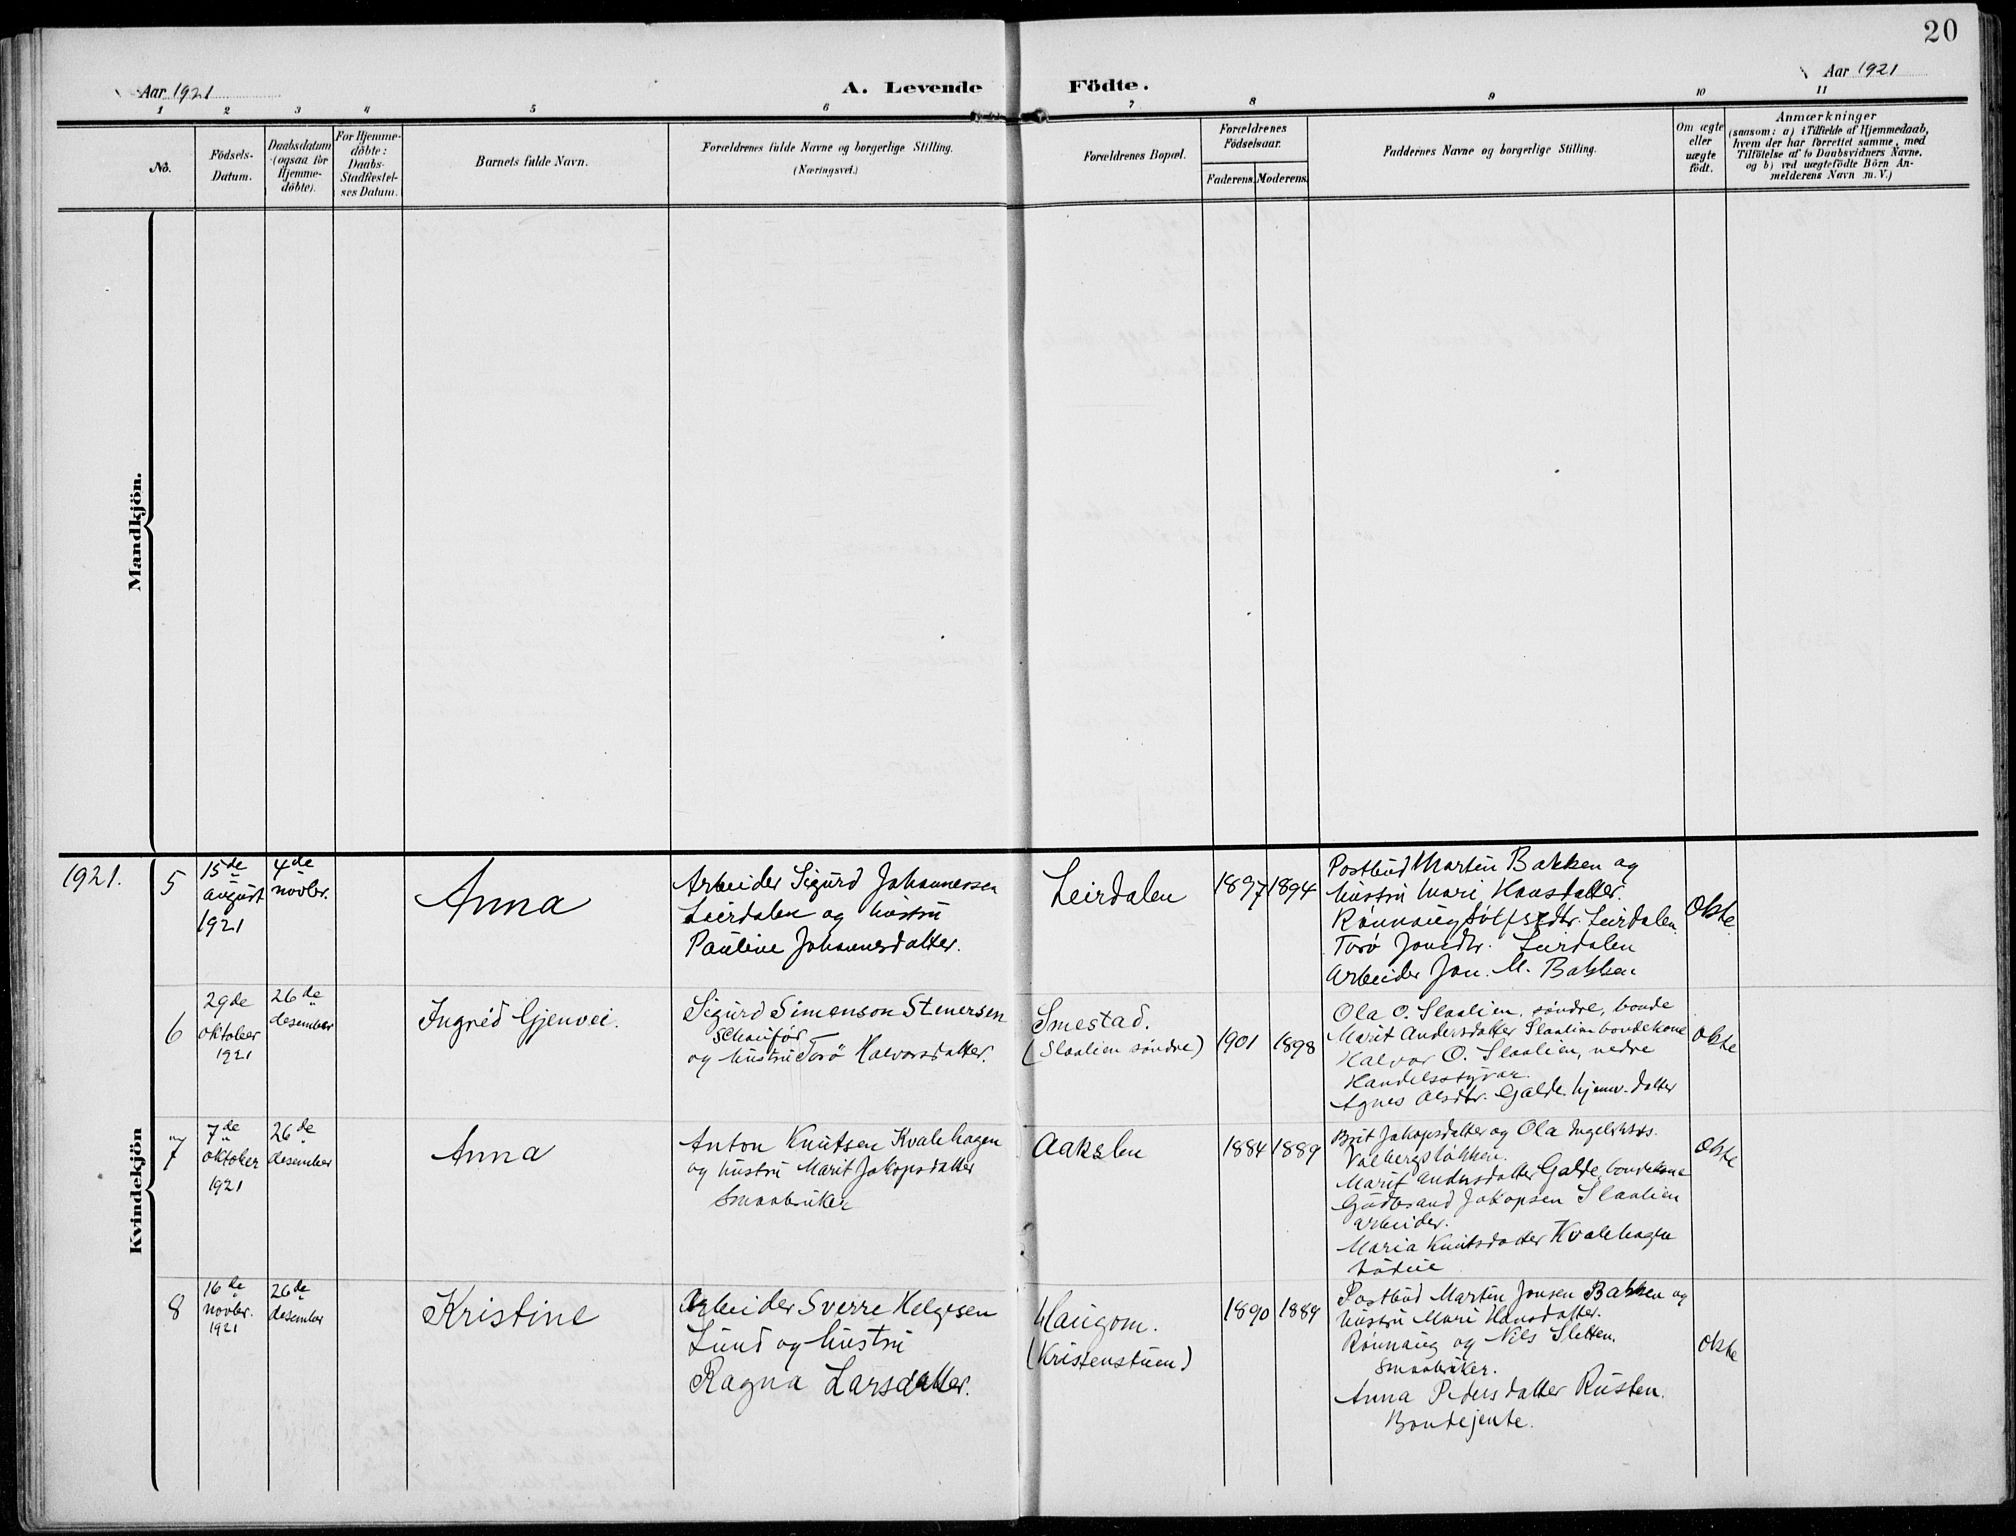 20
Aar 1921
A. Levende Födte.
Aar 1921
1 2 3 4 5 6 7 8 9 10 11
No.
Födsels-
Datum.
Daabsdatum
(ogsaa for
Hjemme-
döbte).
For Hjemme-
döbte:
Daabs-
Stadfæstel-
ses Datum.
Barnets fulde Navn.
Forældrenes fulde Navne og borgerlige Stilling.
(Næringsvei.)
Forældrenes Bopæl.
Forældrenes
Födselsaar.
Faderens. Moderens.
Faddernes Navne og borgerlige Stilling.
Om ægte
eller
uægte
födt.
Anmærkninger
(saasom: a) i Tilfælde af Hjemmedaab,
hvem der har forrettet samme, med
Tilföielse af to Daabsvidners Navne.
og b) ved uægtefödte Börn An-
melderens Navn m. V.)
Mandkjön.
Kvindekjön
1921.
5
15de
august
1921
4de
novbr.
Anna
Arbeider Sigurd Johannessen
Leirdalen og hustru
Pauline Johannesdatter.
Leirdalen
1897 1894
Postbud Martin Bakken og
hustru Mari Hansdatter.
Rønnaug Sølfestdtr. Leirdalen
Torø Jonsdtr. Leirdalen
Arbeider Jon. M. Bakken
ekte
6
29de
oktober
1921
26de
desember
Ingrid Gjenvei.
Sigurd Simenson Stenersen
schauför
og hustru Torø Halvorsdatter.
Smestad.
(Slaalien søndre)
1901 1898
Ola O. Slaalien, søndre, bonde
Marit Andersdatter Slaalien bondekone
Halvor O. Slaalien, nedre
Handelsstyrar.
Agnes Olsdtr. Galde hjemv. datter
ekte
7
7de
oktober
1921
26de
desember
Anna
Anton Knutsen Kvalehagen
og hustru Marit Jakopsdatter
Smaabruker
Aakslen
1884 1889
Brit Jakopsdatter og Ola
Marit Andersdatter Galde bondekone
Gudbrand Jakopsen Slaalien
arbeider.
Maria Knutsdatter Kvalehagen
ekte
8
16de
novbr.
1921
26de
desember
Kristine
Arbeider Sverre Helgesen
Lund og hustru
Ragna Larsdatter.
Haugom.
(Kristenstuen)
1890 1889
Postbud Martin Jonsen Bakken og
hustru Mari Hansdatter.
Rønnaug og Nils Sletten.
Smaabruker.
Anna Pedersdatter Rusten.
Bondejente.
ekte